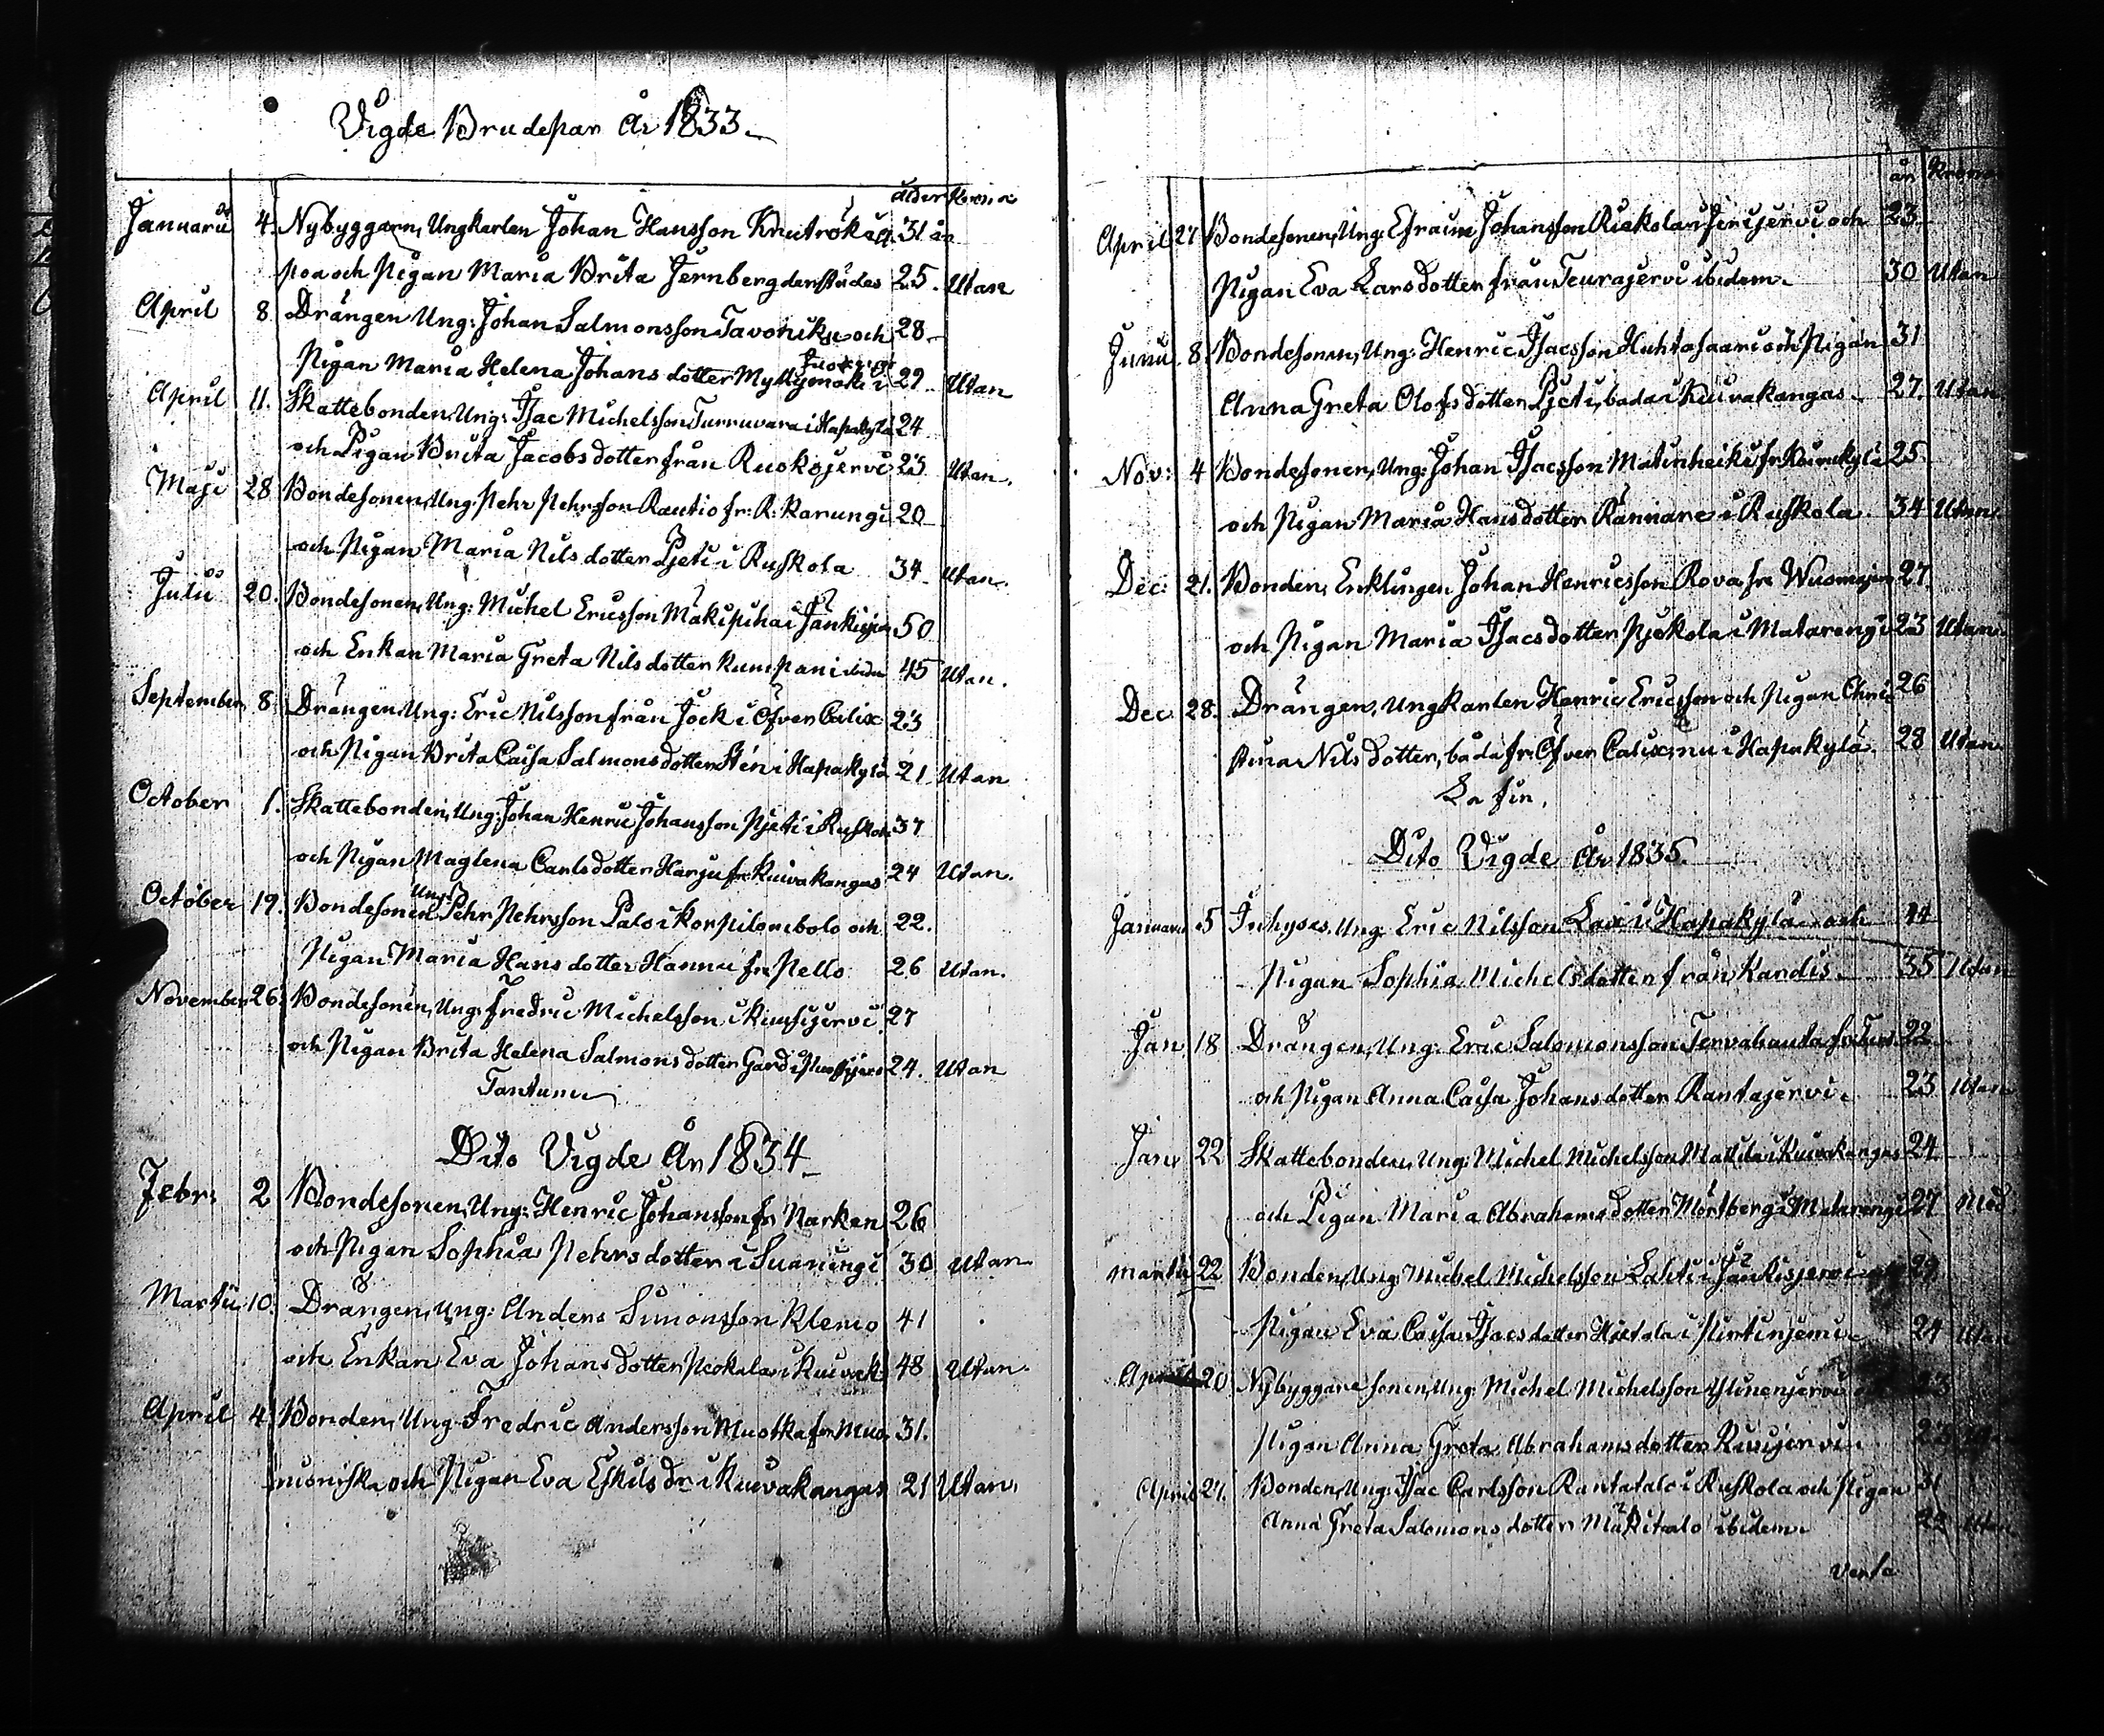 Vigde Brudepar År 1833.
ålder Krona
Januarii 4. Nybyggarn, Ungkarlen Johan Hansson Knut 31 år
poa och Pigan Maria Brita Jernberg derstädes 25. Utan
April 8 Drängen Ung: Johan Salmonsson Tavoniku och 28
Pigan Maria Helena Johans dotter Myllymäki i 29 Utan
April 11. Skattebonden, Ung: Isac Michelsson Turruvara i Hapakylä 24
och Pigan Brita Jacobs dotter från Ruokojervi 23 Utan.
Maji 28 Bondesonen, Ung: Pehr Pehrsson Rautio fr: K: Karungi 20
och Pigan Maria Nils dotter Pjeti i Ruskola 34 Utan.
Julii 20. Bondesonen, Ung: Michel Ericsson Mäkipiha i 50
och Enkan Maria Greta Nils dotter Kumpan 45 Utan.
September 8. Drängen, Ung: Eric Nilsson från Jock i Öfver Calix 23
och Pigan Brita Caisa Salmons dotter Sten i Hapakylä 21 Utan
October 1. Skattebonden, Ung: Johan Henric Johansson Pjeti i Ruskola 37
och Pigan Maglena Carls dotter Harju fr Kuivakangas 24 Utan.
October 19. Bondesonen Ung: Pehr Pehrsson Palo i Korpilombolo och 22.
Pigan Maria Hans dotter Hannu fr. Pello 26 Utan.
November 26. Bondesonen, Ung: Fredric Michelsson i Kiuhsijervi 27
och Pigan Brita Helena Salmons dotter Gardi 24. Utan
Tantum
Dito Vigde År 1834
Febr: 2 Bondesonen, Ung: Henric Johansson fr Narken 26
och Pigan Sophia Pehrs dotter i Svanengi 30 Utan
Martii 10. Drängen, Ung: Anders Simonsson Klemo 41
och Enkan Eva Johans dotter Niskala i Kuivak: 48 Utan.
April 4. Bonden, Ung: Fredric Andersson Muotka fr Muo 31.
nioniska och Pigan Eva Eskils dr i Kuivakangas 21 Utan.
år Krona
April 27 Bondesonen, Ung: Efraim Johansson Riekola i Jerijervi och 23
Pigan Eva Lars dotter från Teurajervi ibidem. 30 Utan
Junii 8. Bondesonen, Ung: Henric Isacsson Huhtasaari och Pigan 31
Anna Greta Olofs dotter Pjeti, bada i Kuivakangas 27. Utan
Nov: 4 Bondesonen, Ung: Johan Isacsson Matinheiki fr 25
och Pigan Maria Hans dotter Kännare i Ruskola. 34 Utan
Dec: 21. Bonden, Enklingen Johan Henricsson Rova, fr 27
och Pigan Maria Isacs dotter Pjekola i Matarengi 23 Utan
Dec 28. Drängen, Ungkarlen Henric Ericsson och Pigan Chri 26
stina Nils dotter, båda fr: Öfver Calix, nu i Hapakylä. 28 Utan
La fin.
Dito Vigde År 1835.
Januarii 5 Inhyses, Ung: Eric Nilsson Lax i Hapakylä och 44
Pigan Sophia Michels dotter från Kardis 35 Utan
Jan 18 Drängen, Ung: Eric Salomonsson Tervahauta 22
och Pigan Anna Caisa Johans dotter Rantajervi. 23 Utan
Jan 22 Skattebonden, Ung: Michel Michelsson Mattila i Kuivakangas 24
och Pigan Maria Abrahams dotter Mörtberg i Matarengi 27 Med
Martii 22 Bonden, Ung: Michel Michelsson Lahti i Jänkisjervi
Pigan Eva Caisa Isacs dotter Hietala i 24 Utan
April 20 Nybyggare sonen, Ung: Michel Michelsson
Pigan Anna Greta Abrahams dotter
April 27. Bonden, Ung: Isac Carlsson Rantatalo i Ruskola och Pigan 31
Anna Greta Salomons dotter Mäkitalo ibidem. 22 Utan
Verte